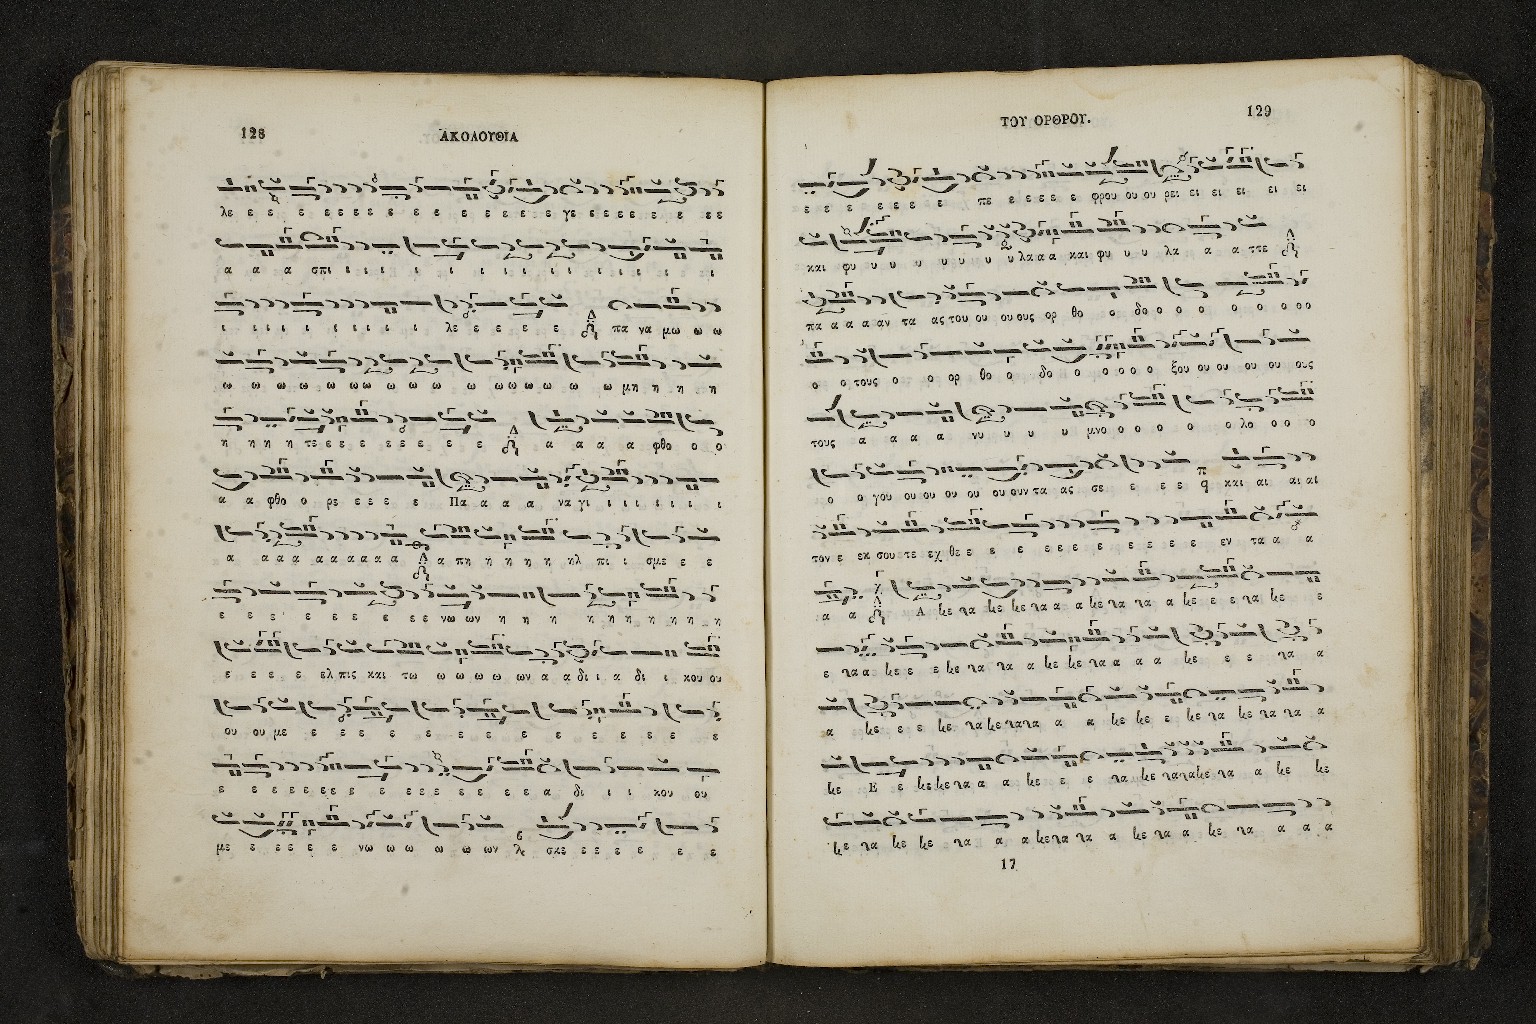 128
ΑΚΟΛΟΥΘΙΑ
λε ε ε ε ε ε ε ε ε ε ε ε ε ε ε ε ε γε ε ε ε ε ε ε ε ε
α α α σπι ι ι ι ι ι ι ι ι ι ι ι ι ι
ι ι ι ι ι ι ι ι ι ι λε ε ε ε ε πα να μω ω ω
ω ω ω ω ω ω ω ω ω ω ω ω ω ω ω ω ω μη η η η
η η η η τε ε ε ε ε ε ε ε ε α α α α φθο ο ο
α α φθο ο ρε ε ε ε ε Πα α α α να γι ι ι ι ι ι ι ι
α α α α α α α α α α α πη η η η η ηλ πι ι σμε ε ε
ε ε ε ε ε ε ε ε ε νω ων η η η η η η η η η η
ε ε ε ε ελ πις και τω ω ω ω ω ων α α δι ι α δι ι κου ου
ου ου με ε ε ε ε ε ε ε ε ε ε ε ε ε ε
ε ε ε ε ε ε ε ε ε ε ε ε ε ε ε α δι ι ι κου ου
με ε ε ε ε ε νω ω ω ω ω ων λε σκε ε ε ε ε ε ε
ΤΟΥ ΟΡΘΡΟΥ.
129
ε ε ε ε ε ε ε πε ε ε ε ε φρου ου ου ρει ει ει ει ει ει
και φυ υ υ υ υ υ υ υ λα α α και φυ υ υ λα α α ττε
πα α α α αν τα ας του ου ου ους ορ θο ο δο ο ο ο ο ο ο ο
ο ο τους ο ο ορ θο ο δο ο ο ο ο ο ξου ου ου ου ου ους
τους α α α α νυ υ υ υ υ μνο ο ο ο ο ο ο λο ο ο ο
ο ο γου ου ου ου ου ου ουν τα ας σε ε ε ε και αι αι αι
τον ε εκ σου τε εχ θε ε ε ε ε ε ε ε ε ε ε ε εν τα α α
α α Α κε τα κε κε τα α α κε τα τα α κε ε ε τα κε ε
ε τα α κε ε ε κε τα τα α κε κε τα α α α α κε ε ε τα α
α κε ε ε κε τα κε τα τα α α κε κε ε κε τα κε τα τα α
κε Ε ε κε κε τα α α κε ε ε τα κε τα τα κε τα α κε κε
κε τα κε κε τα α α κε τα τα τα α κε τα α κε τα α α α
17